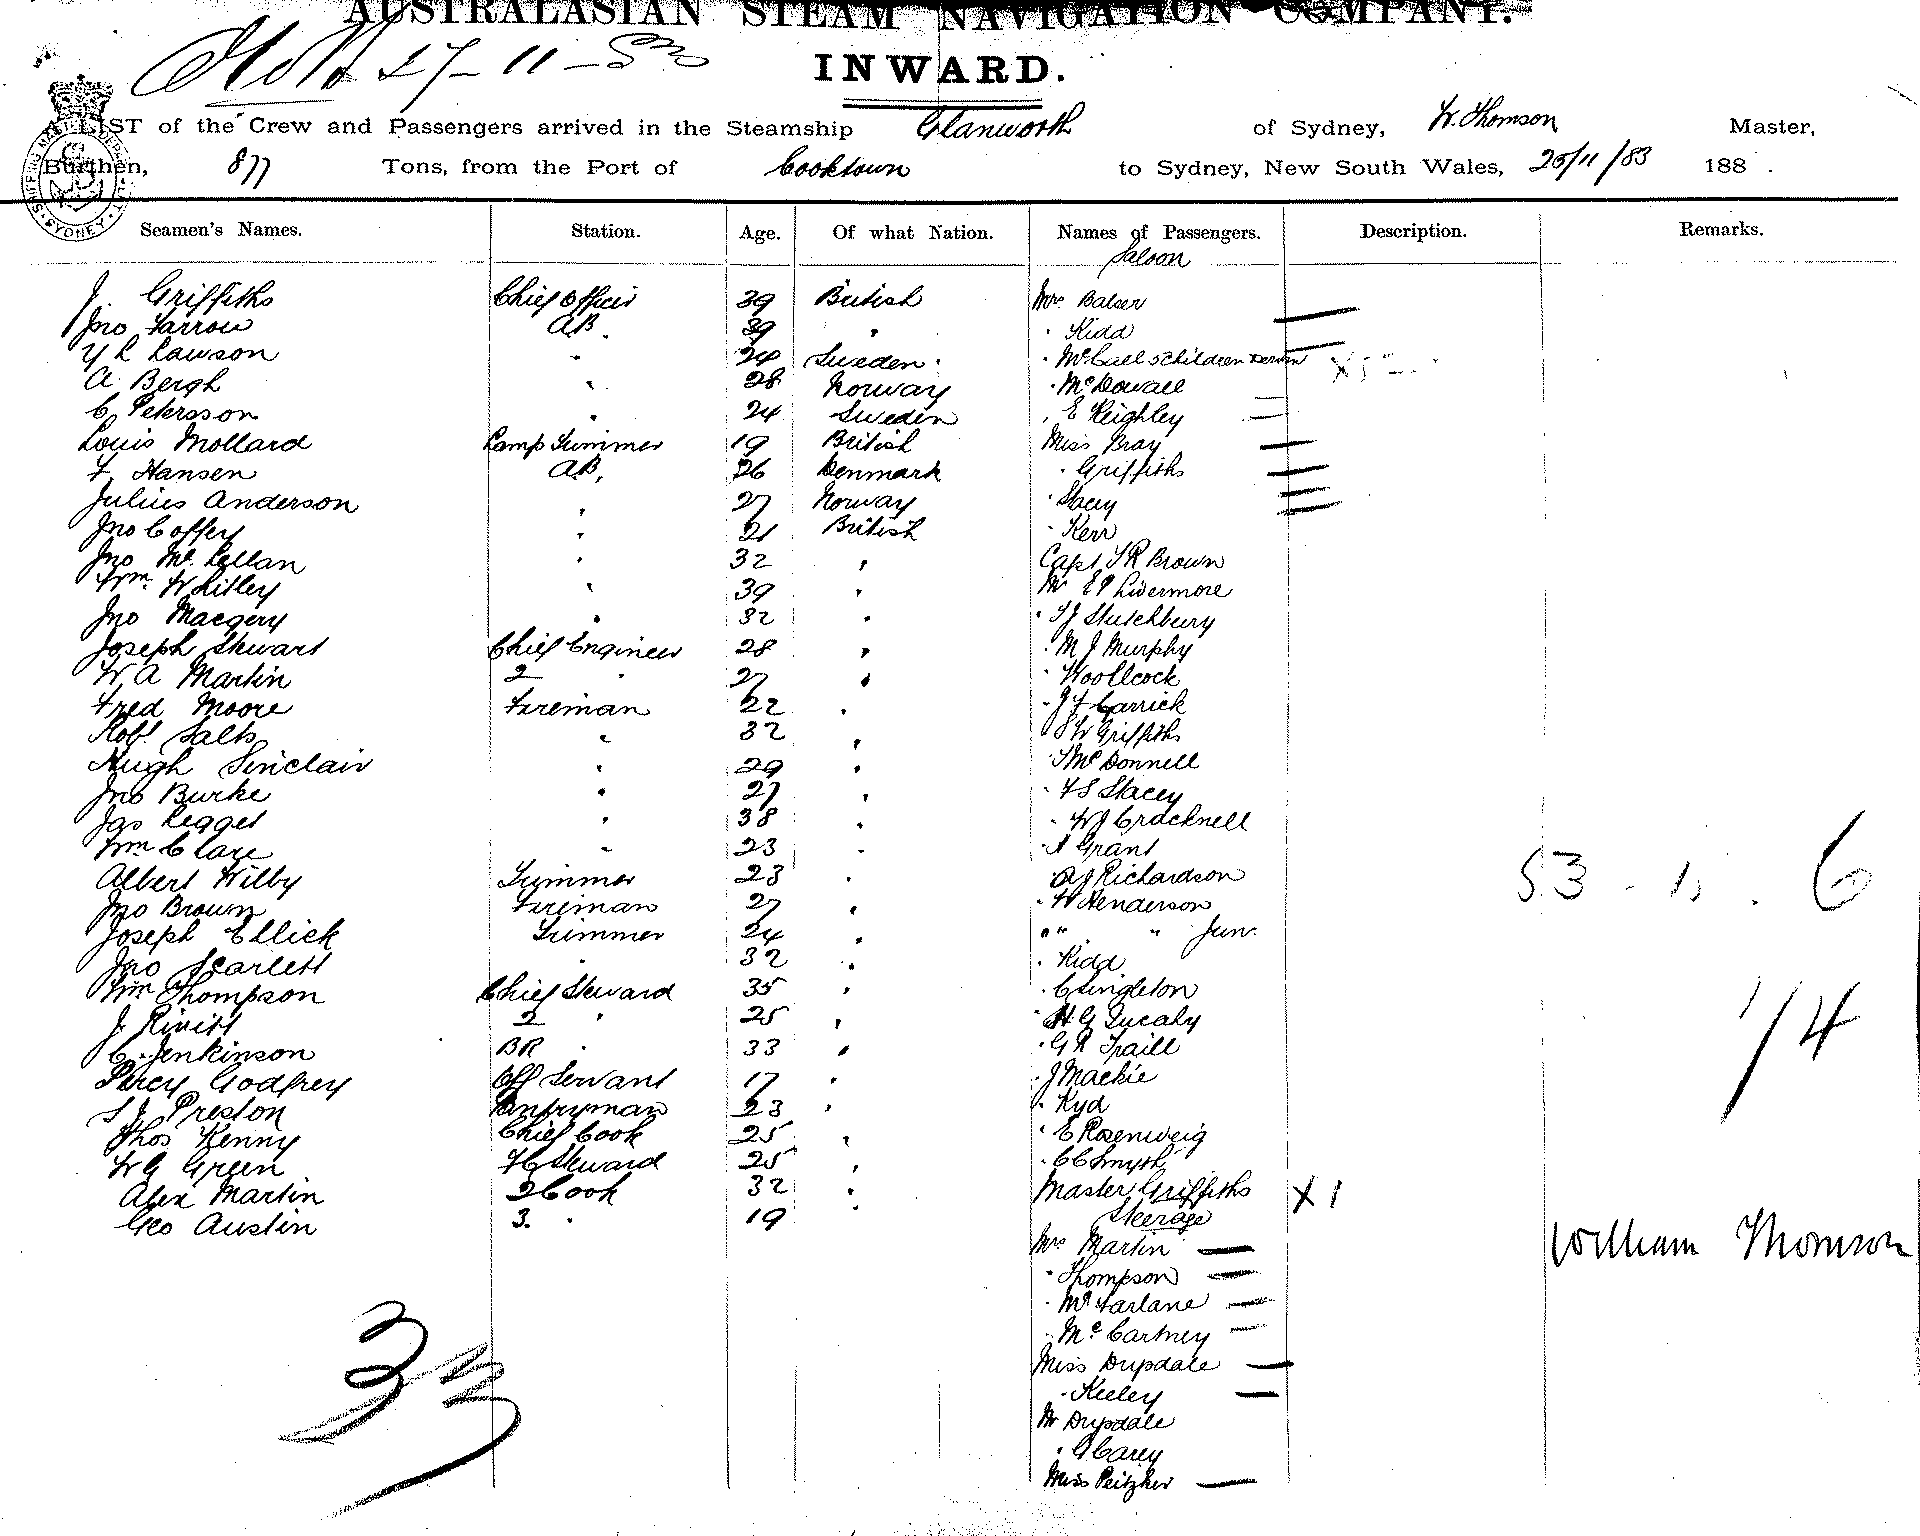 AUSTRALASIAN STEAM NAVIGATION COMPANY.
27-11-83
INWARD.
A LIST of the Crew and Passengers arrived in the Steamship Glanworth of Sydney, W. Thomson Master,
Burthen, 877 Tons, from the Port of Cooktown to Sydney, New South Wales, 25/11/83 188 .
Seamen's Names. Station. Age. Of what Nation. Names of Passengers. Description. Remarks.
Saloon
J. Griffiths Chief Officer 39 British Mrs Balser
Jno Farrow AB 39 " " Kidd
Y L Lawson " 24 Sweden " McCall children
A Bergh " 28 Norway " McDowall
C. Petersson " 24 Sweden " E Keighley
Louis Mollard Lamp Trimmer 19 British Miss Bray
F. Hansen AB. 26 Denmark " Griffiths
Julius Anderson " 27 Norway " Stacey
Jno Coffey " 21 British " Kerr
Jno McLellan " 32 " Capt T R Brown
Wm Whitley " 39 " Mr E P Livermore
Jno Macgery " 32 " " T J Stutchbury
Joseph Stewart Chief Engineer 28 " " M J Murphy
W. A Martin 2 " 27 " " Woollcock
Fred Moore Fireman 22 " " J F Carrick
Robt Salts " 32 " " S W Griffiths
Hugh Sinclair " 29 " " T McDonnell
Jno Burke " 27 " " F S Stacey
Jas Legget " 38 " " W J Cracknell
Wm Clare " 23 " " A Grant
Albert Wilby Trimmer 23 " A J Richardson
Jno Brown Fireman 27 " " W Henderson
Joseph Ellick Trimmer 24 " " " " Jun.
Jno Scarlett " 32 " " Kidd
Wm Thompson Chief Steward 35 " " C Singleton
J. Rivitt 2 " 25 " " H. G
C. Jenkinson BR " 33 " " G R Traill
Percy Godfrey Off Servant 17 " " J Mackie
S J Preston Pantryman 23 " " Kyd
Thos Kenny Chief Cook 25 " " E Rosenweig
W G Green F C Steward 25 " " C C Smyth
Alex Martin 2 Cook 32 " Master Griffiths X 1
Geo Austin 3. " 19 " Steerage
Mrs Martin
" Thompson
" McFarlane
" McCartney
Miss Drysdale
" Keeley
Mr Drysdale
" G Carey
Miss Peitzker
53 - 1. 6
14
William Thomson
33